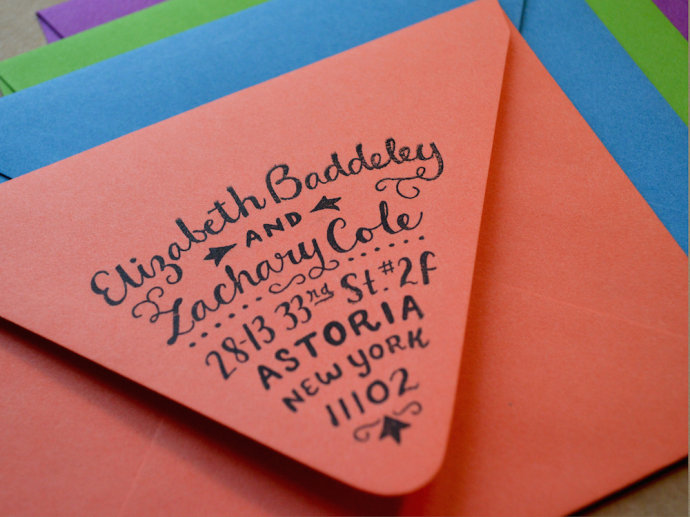 Elizabeth Baddeley
AND
Zachary Cole
28-13 33rd St. #2F
ASTORIA
NEW YORK
11102